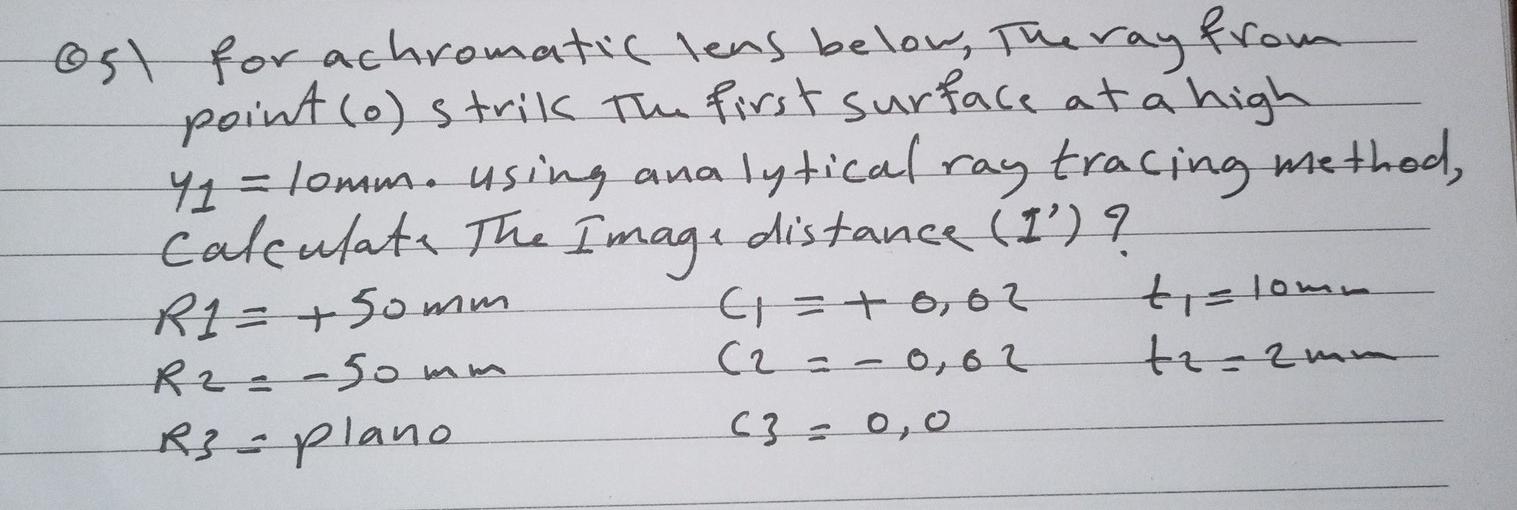 Q5\ for achromatic lens below, The ray from
point (o) strik The first surface at a high
y1 = 10mm. using analytical ray tracing method,
Calculate The Image distance (I') ?
R1 = +50mm C1 = +0,02 t1 = 10mm
R2 = -50mm C2 = -0,02 t2 = 2mm
R3 = plano C3 = 0,0